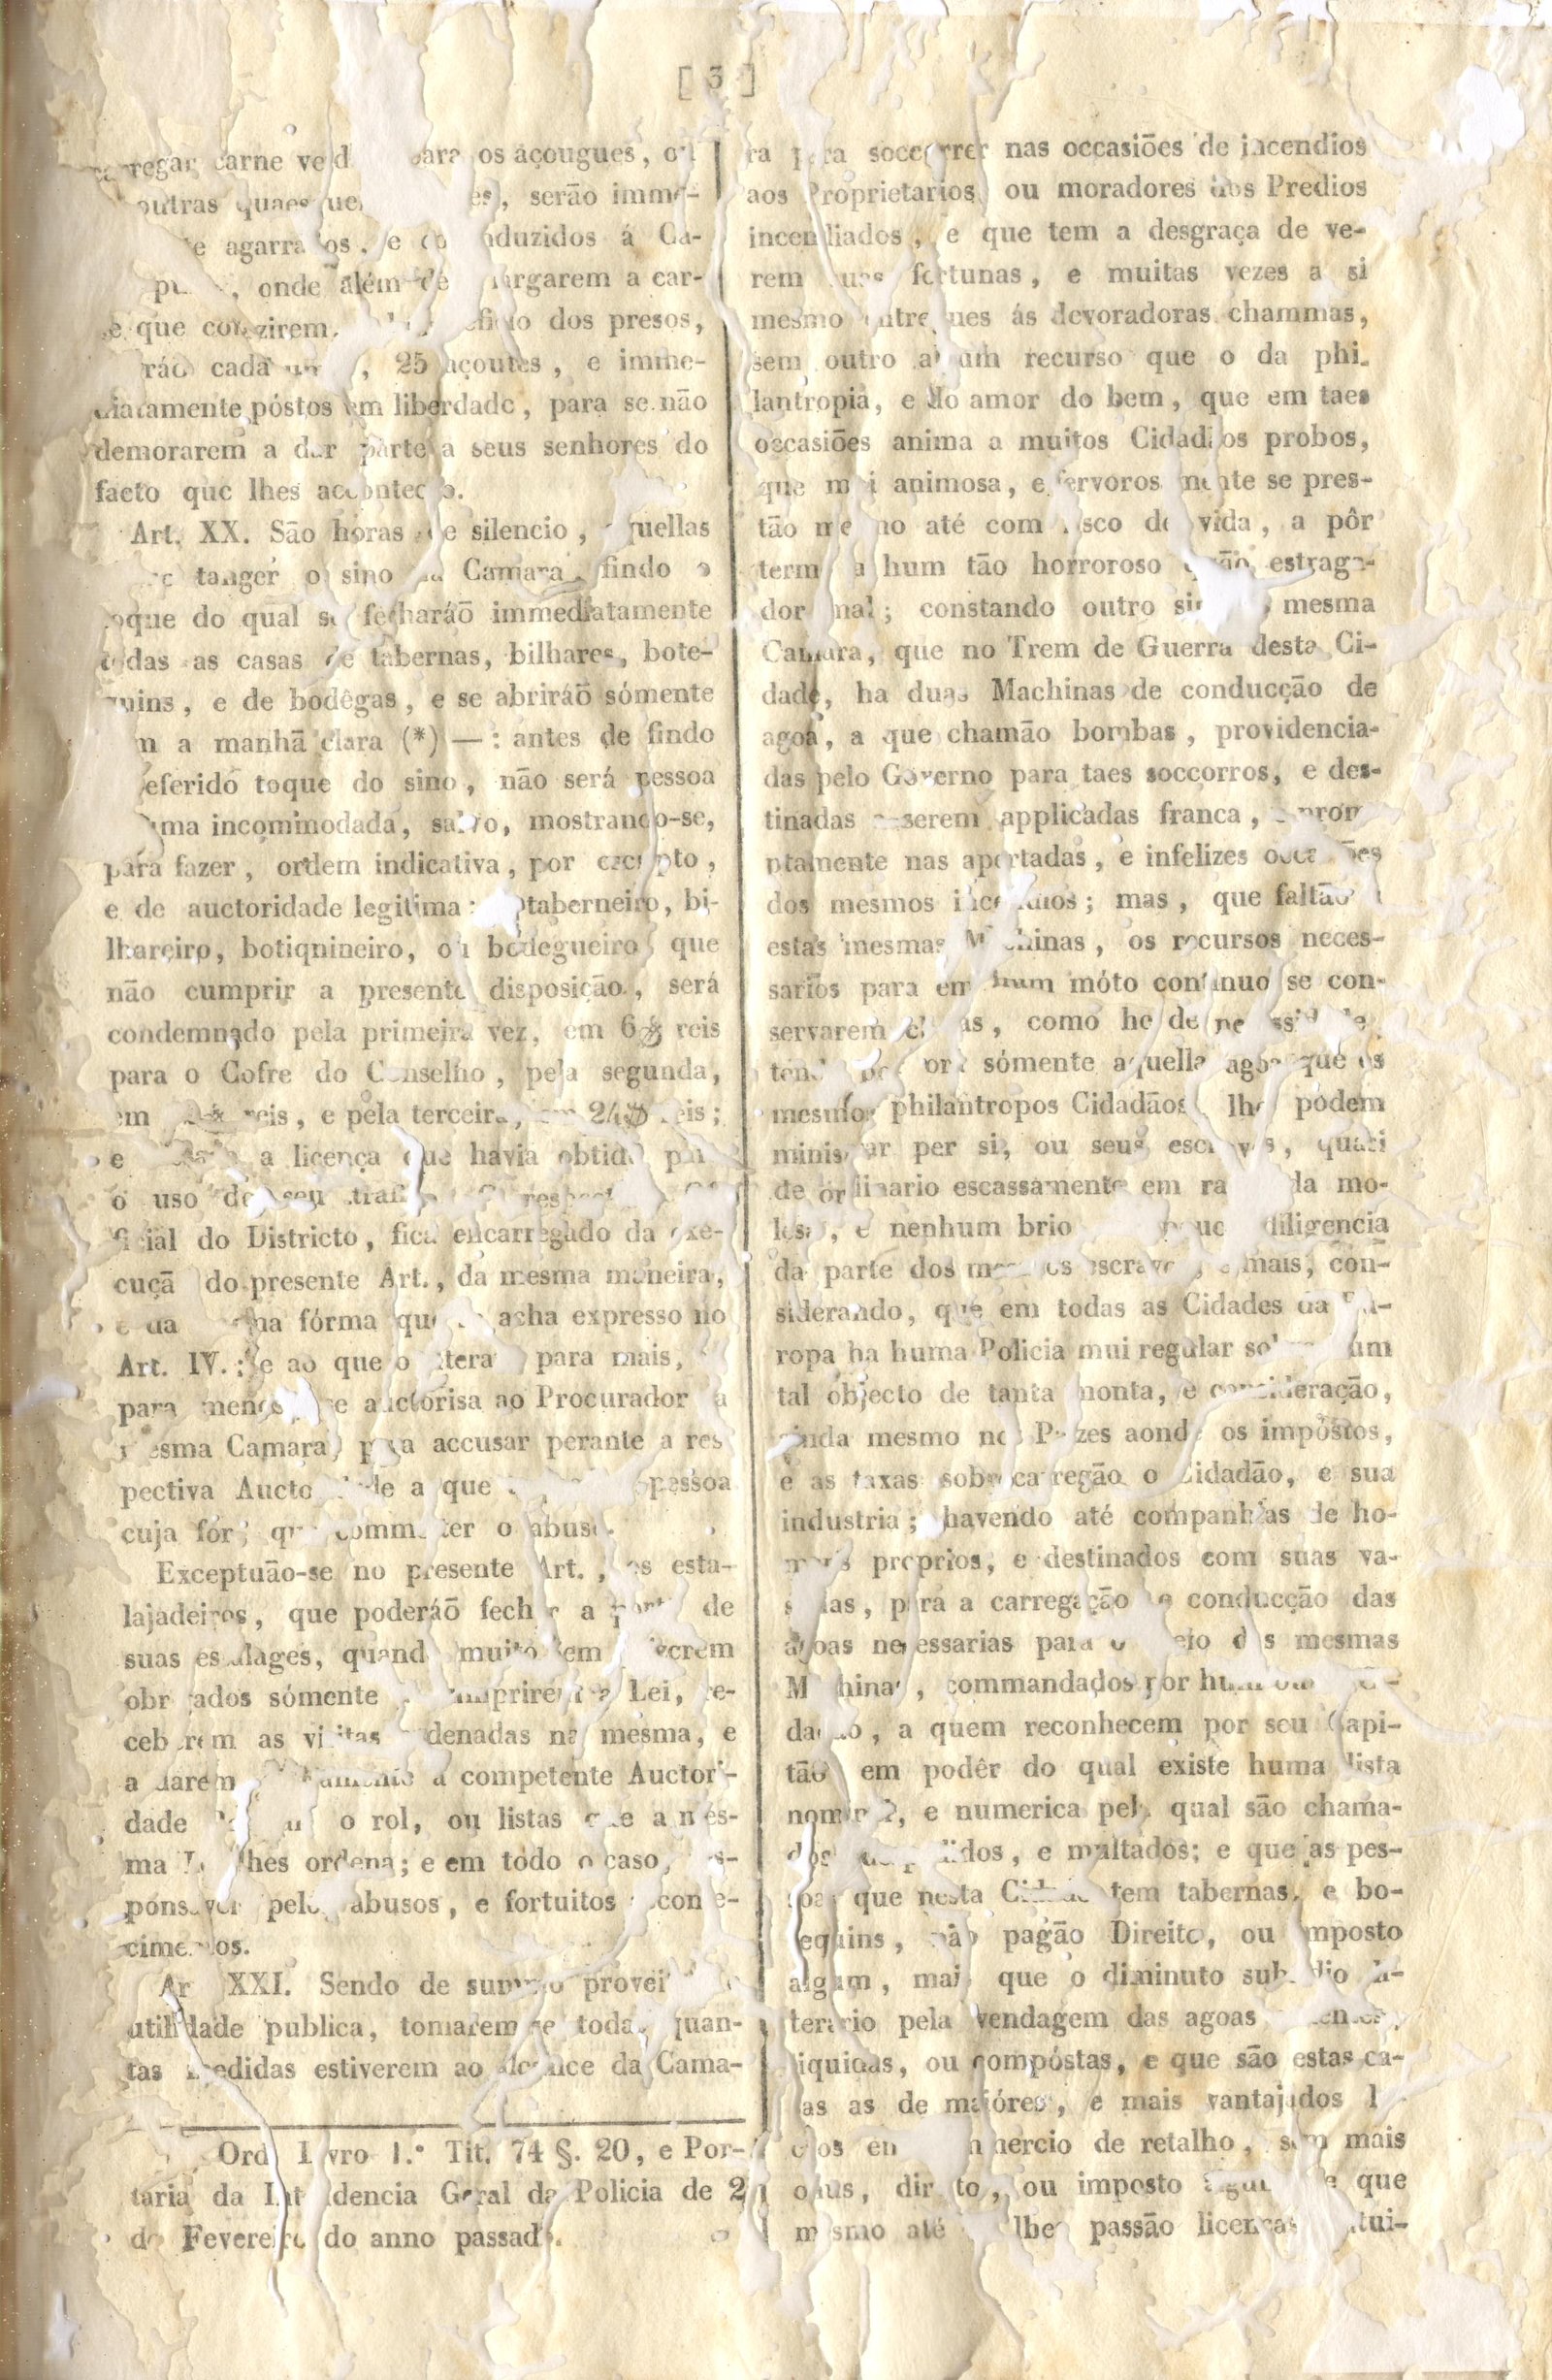 [ 3 ]
carne para os açougues, ou
outras serão imme-
agarrados, e conduzidos á Ca-
onde além de largarem a car-
que dos presos,
cada 25 açoutes, e imme-
diatamente póstos em liberdade, para se não
demorarem a dar parte a seus senhores do
facto que lhes
Art. XX. São horas de silencio, aquellas
tanger o sino da Camara, findo o
toque do qual se fecharáõ immediatamente
todas as casas de tabernas, bilhares, bote-
quins, e de bodêgas, e se abriráõ sómente
a manhã clara (*) —: antes de findo
referido toque do sino, não será pessoa
incommodada, salvo, mostrando-se,
para fazer, ordem indicativa, por escripto,
e de auctoridade legitima: taberneiro, bi-
lhareiro, botiqnineiro, ou bodegueiro que
não cumprir a presente disposição, será
condemnado pela primeira vez, em 6$ reis
para o Cofre do Conselho, pela segunda,
em reis, e pela terceira, em 24$ reis;
e a licença que havia obtido para
o uso do seu
ficial do Districto, fica encarregado da exe-
cução do presente Art., da mesma maneira,
e da fórma que acha expresso no
Art. IV.: e ao que para mais,
para menos, se auctorisa ao Procurador da
mesma Camara, para accusar perante a res
pectiva a que pessoa
cuja commetter o abuso.
Exceptuão-se no presente Art., os esta-
lajadeiros, que poderáõ fechar a porta de
suas estalages, quando muito
obrigados sómente a cumprirem a Lei, re-
ceberem as visitas ordenadas na mesma, e
a darem a competente Auctori-
dade o rol, ou listas que a mes-
ma Lei lhes ordena; e em todo o caso, res-
ponsaveis pelos abusos, e fortuitos aconte-
cimentos.
Art. XXI. Sendo de summo
utilidade publica, tomarem-se todas quan-
tas medidas estiverem ao alcance da Cama-
Ord. Livro 1.º Tit. 74 §. 20, e Por-
taria da Intendencia Geral da Policia de 2
de Fevereiro do anno passado.
ra para soccorrer nas occasiões de incendios
aos Proprietarios, ou moradores dos Predios
incendiados, e que tem a desgraça de ve-
rem suas fortunas, e muitas vezes a si
mesmo entregues ás devoradoras chammas,
sem outro algum recurso que o da phi-
lantropia, e do amor do bem, que em taes
occasiões anima a muitos Cidadãos probos,
que mui animosa, e fervorosamente se pres-
tão mesmo até com risco de vida, a pôr
termo a hum tão horroroso quão estraga-
dor mal; constando outro sim mesma
Camara, que no Trem de Guerra desta Ci-
dade, ha duas Machinas de conducção de
agoa, a que chamão bombas, providencia-
das pelo Governo para taes soccorros, e des-
tinadas a serem applicadas franca, e prom
ptamente nas apertadas, e infelizes occasiões
dos mesmos incendios; mas, que faltão a
estas mesmas Machinas, os recursos neces-
sarios para em hum móto continuo se con-
servarem cheias, como he de necessidade,
tendo por ora sómente aquella agoa que os
mesmos philantropos Cidadãos lhe podem
ministrar per si, ou seus escravos, quasi
de ordinario escassamente em da mo-
lestia, e nenhum brio diligencia
da parte dos mesmos escravos, e mais, con-
siderando, que em todas as Cidades da Eu-
ropa ha huma Policia mui regular sobre hum
tal objecto de tanta monta, e consideração,
ainda mesmo nos Paizes aonde os impóstos,
e as taxas sobrecarregão o Cidadão, e sua
industria; havendo até companhias de ho-
mens proprios, e destinados com suas va-
silhas, pára a carregação e conducção das
agoas necessarias para o meio das mesmas
Machinas, commandados por hum
dadão, a quem reconhecem por seu Capi-
tão em podêr do qual existe huma lista
nominal, e numerica pela qual são chama-
dos e multados; e que as pes-
soas que nesta Cidade tem tabernas, e bo-
tequins, não pagão Direito, ou imposto
algum, mais que o diminuto subsidio li-
terario pela vendagem das agoas ardentes,
liquidas, ou compóstas, e que são estas ca-
sas as de maióres, e mais vantajados
commercio de retalho, sem mais
onus, direito, ou imposto algum e que
mesmo até lhes passão licenças gratui-